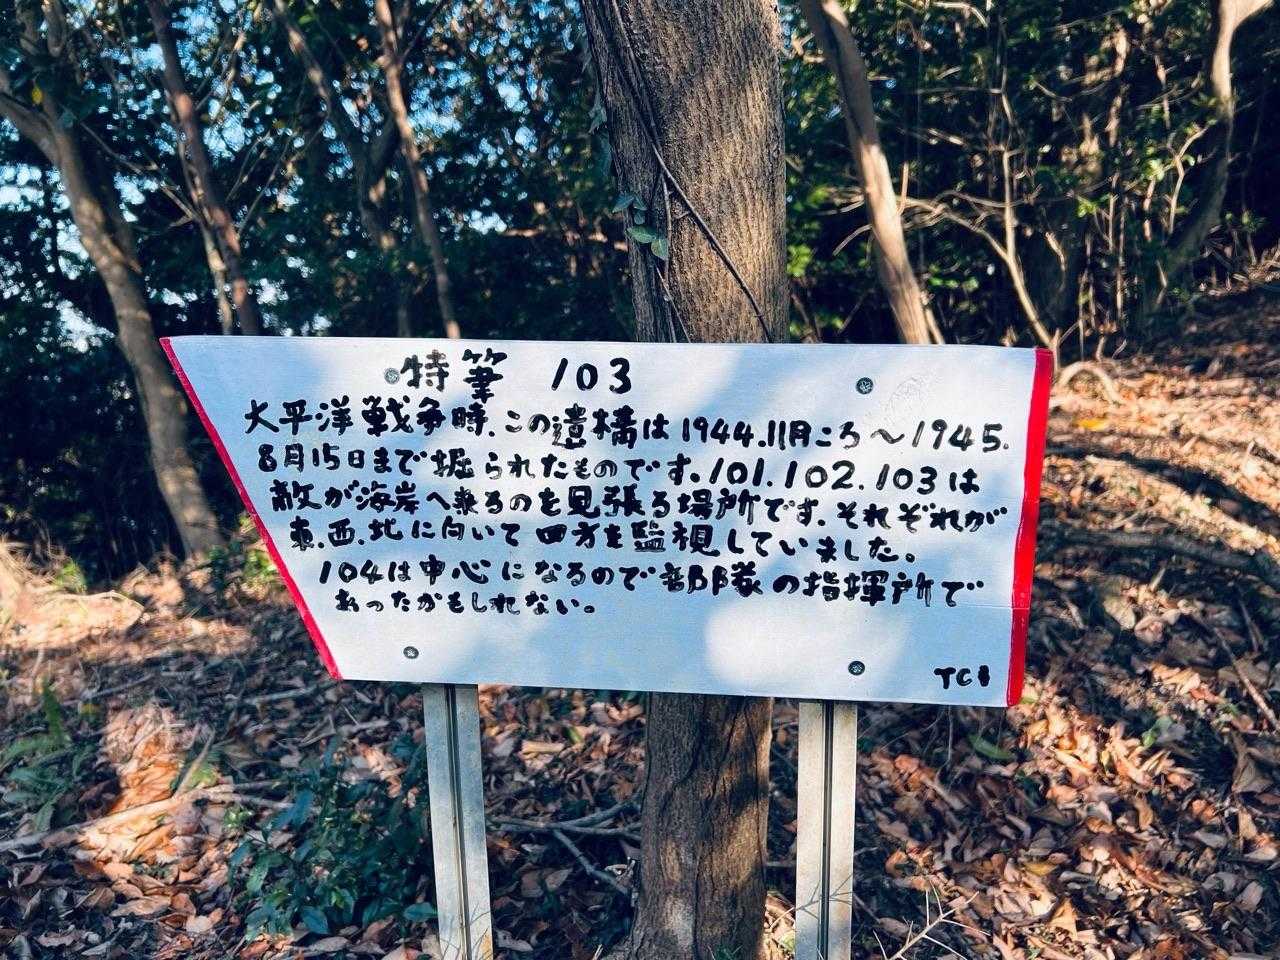 特筆 103
太平洋戦争時.この遺構は1944.11月ころ～1945.
8月15日まで掘られたものです.101.102.103は
敵が海岸へ来るのを見張る場所です.それぞれが
東.西.北に向いて四方を監視していました。
104は中心になるので部隊の指揮所で
あったかもしれない。
TGI